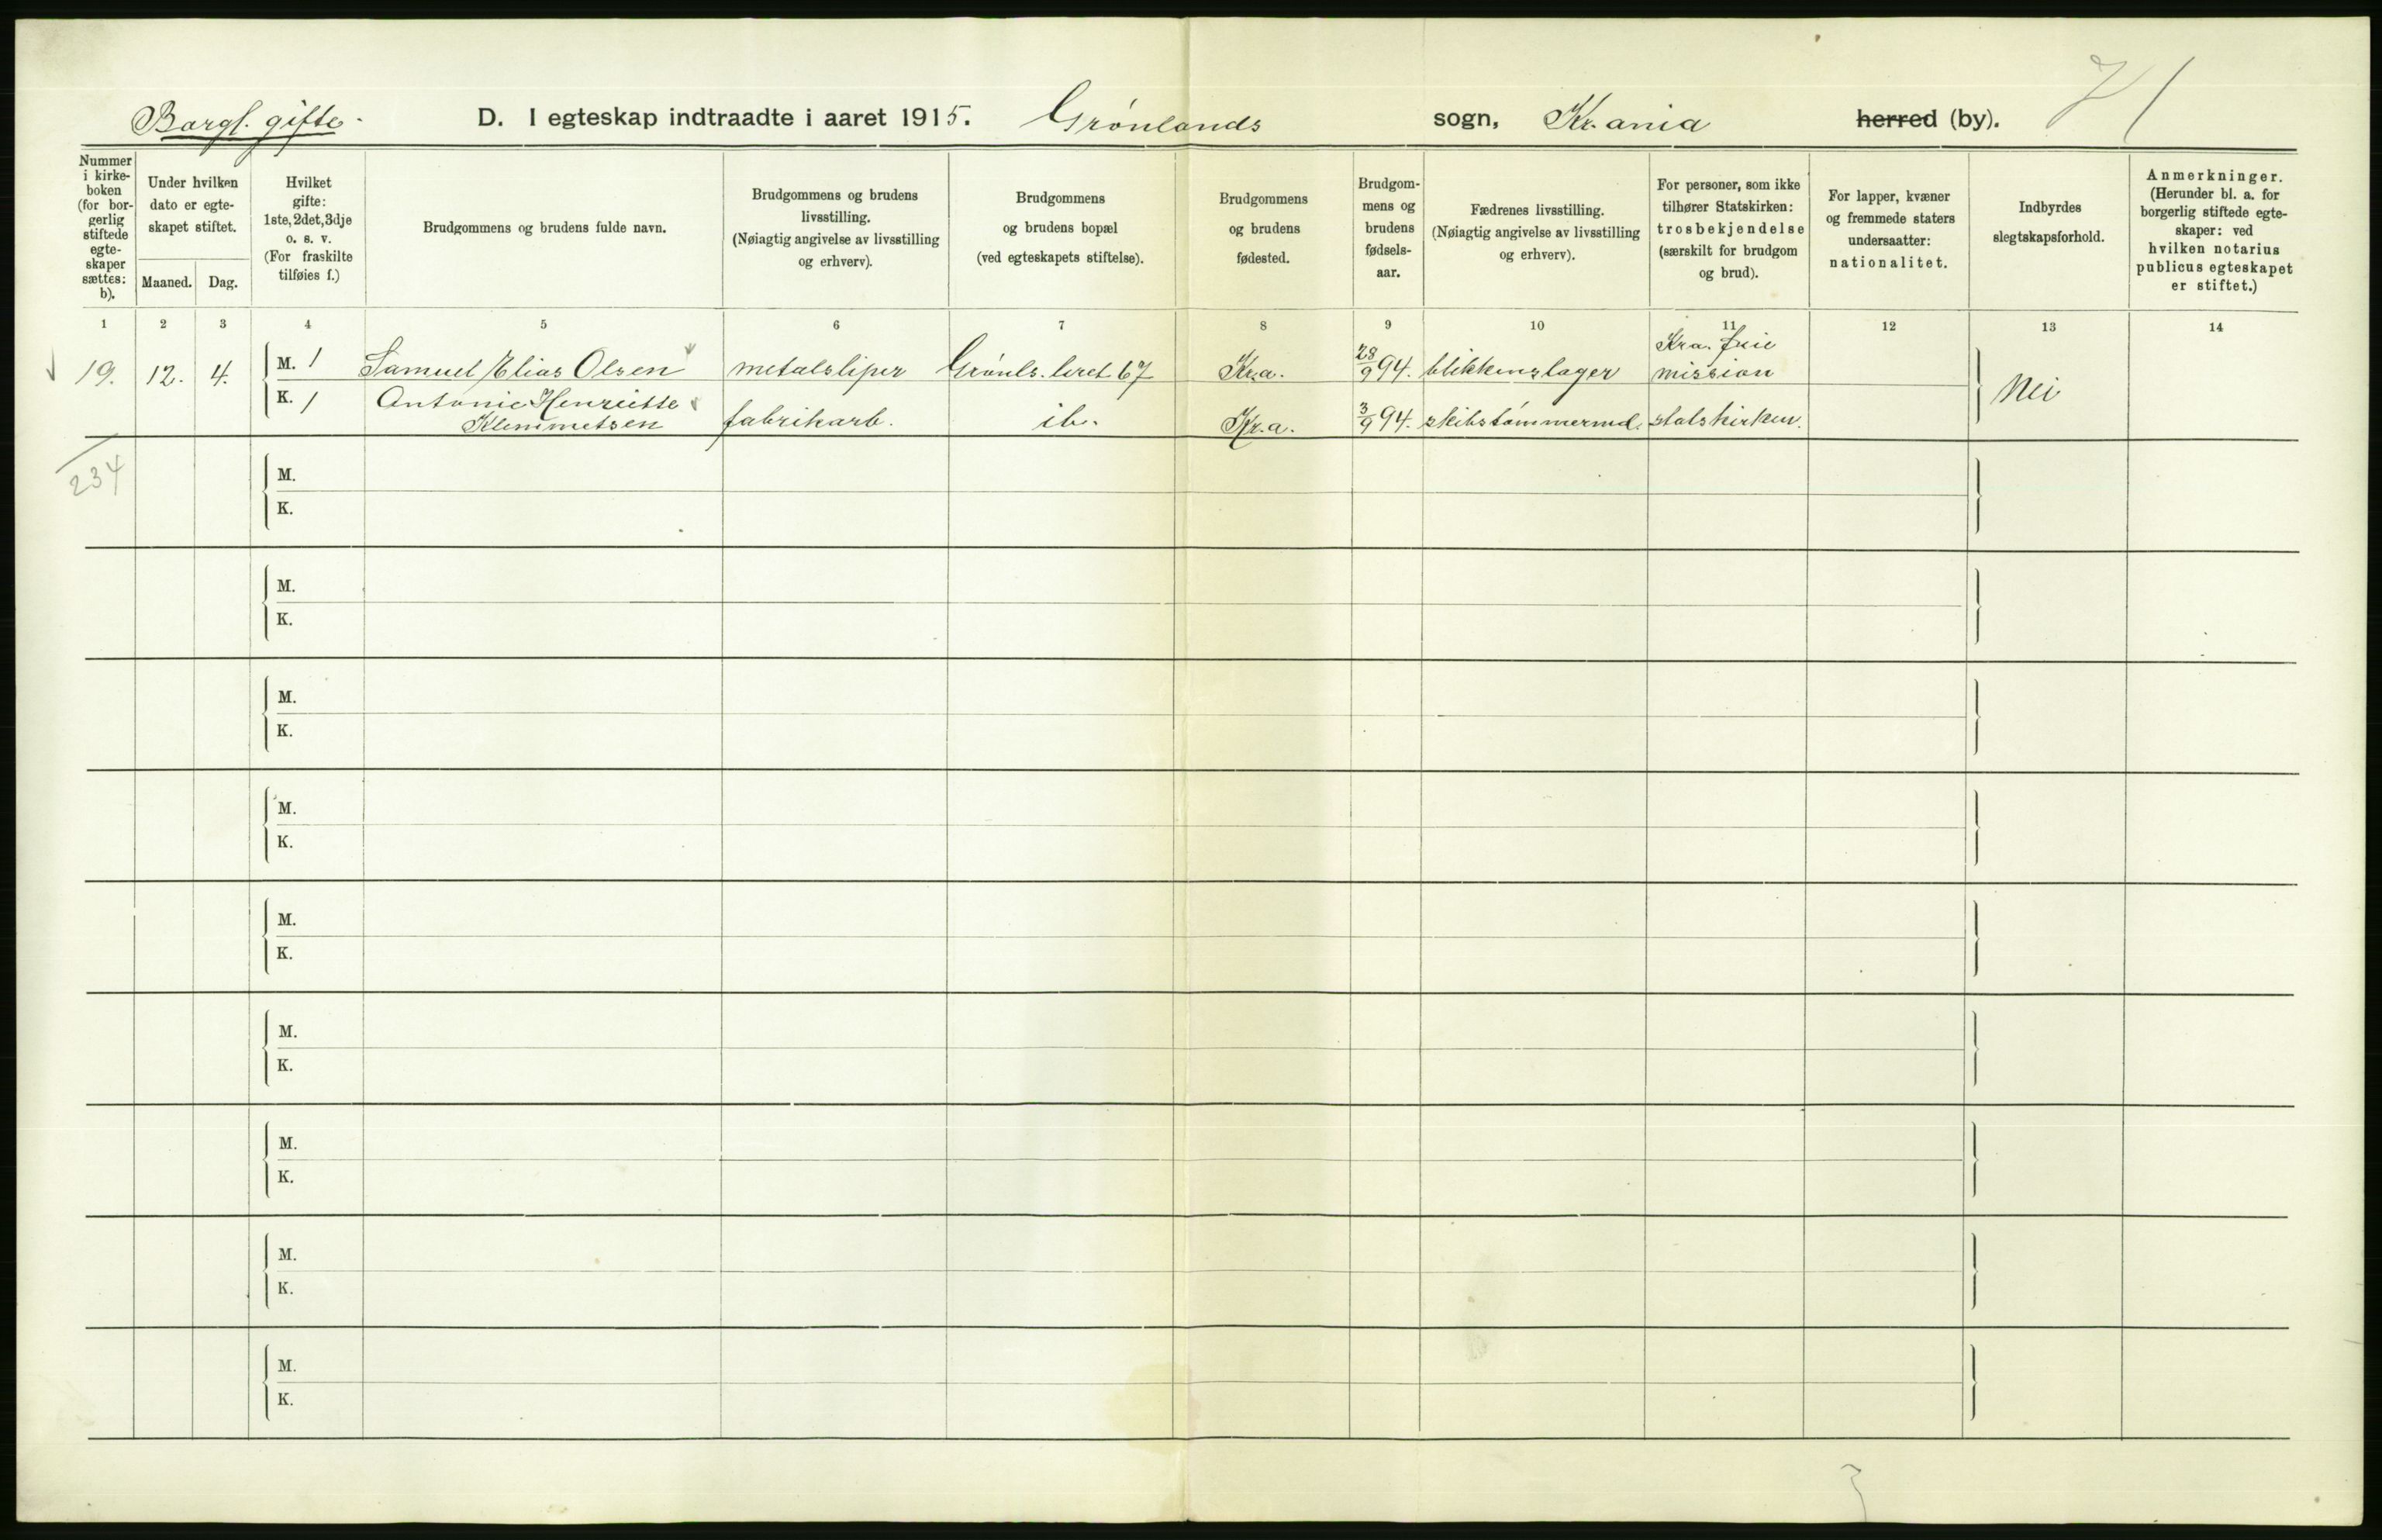 Borgl. gifte.
D. I egteskap indtraadte i aaret 1915. Grønlands sogn, Kr.ania herred (by).
Nummer i kirke-boken (for bor-gerlig stiftede egte-skaper sættes: b).
Under hvilken dato er egte-skapet stiftet.
Maaned. Dag.
Hvilket gifte: 1ste, 2det, 3dje o. s. v. (For fraskilte tilføies f.)
Brudgommens og brudens fulde navn.
Brudgommens og brudens livsstilling. (Nøiagtig angivelse av livsstilling og erhverv).
Brudgommens og brudens bopæl (ved egteskapets stiftelse).
Brudgommens og brudens fødested.
Brudgom-mens og brudens fødsels-aar.
Fædrenes livsstilling. (Nøiagtig angivelse av livsstilling og erhverv).
For personer, som ikke tilhører Statskirken: trosbekjendelse (særskilt for brudgom og brud).
For lapper, kvæner og fremmede staters undersaatter: nationalitet.
Indbyrdes slegtskapsforhold.
Anmerkninger. (Herunder bl. a. for borgerlig stiftede egte-skaper: ved hvilken notarius publicus egteskapet er stiftet.)
1 2 3 4 5 6 7 8 9 10 11 12 13 14
19. 12. 4. M. 1 Samuel Elias Olsen metalsliper Grønls. leret 67 Kr.a. 28/9 94. blikkenslager Kra. frie mission
K. 1 Antonie Henriette Klemmetsen fabrikarb. ib. Kr.a. 3/9 94. skibstømmermd. statskirken. Nei
234
M.
K.
M.
K.
M.
K.
M.
K.
M.
K.
M.
K.
M.
K.
M.
K.
M.
K.